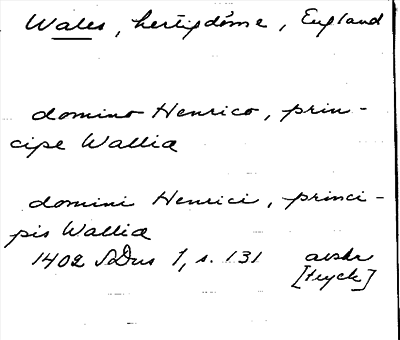 Wales, hertigdöme, England
domino Henrico, prin-
cipe Wallia
domini Henrici, princi-
pis Wallia
1402 SDns 1, s. 131 avskr
[tryck]